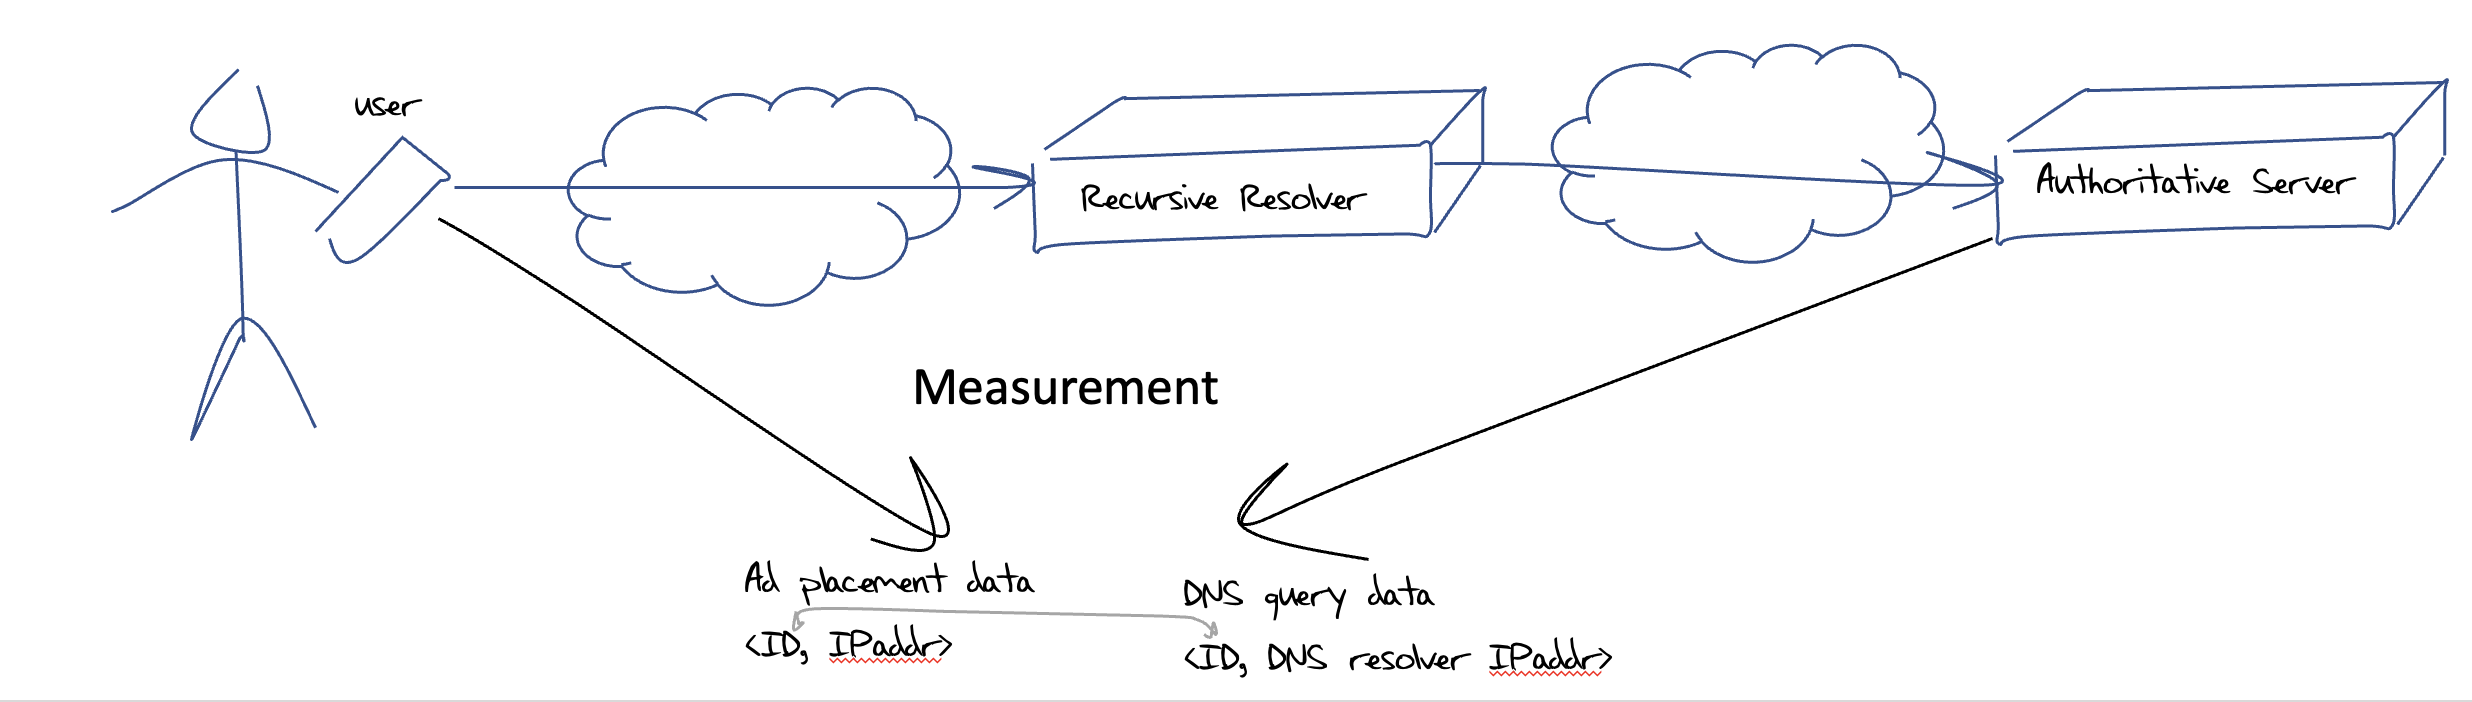 user
Recursive Resolver
Authoritative Server
Measurement
Ad placement data
<ID, IPaddr>
DNS query data
<ID, DNS resolver IPaddr>